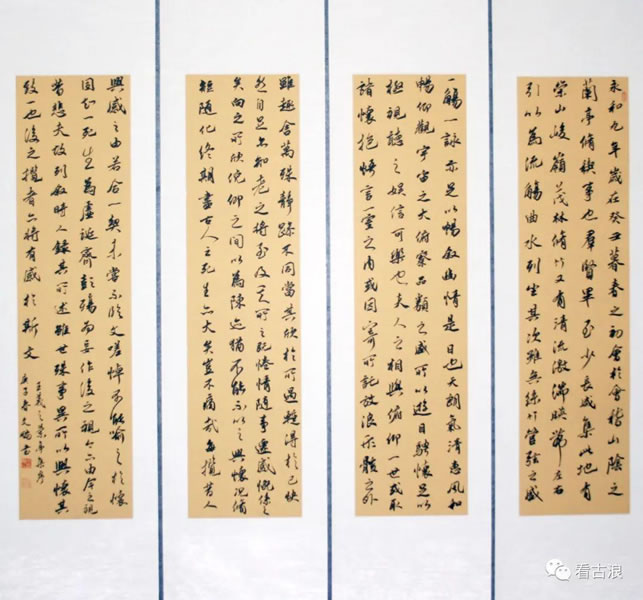 永和九年歲在癸丑暮春之初會於會稽山陰之
蘭亭脩禊事也羣賢畢至少長咸集此地有
崇山峻嶺茂林脩竹又有清流激湍映帶左右
引以為流觴曲水列坐其次雖無絲竹管弦之盛
一觴一詠亦足以暢敘幽情是日也天朗氣清惠風和
暢仰觀宇宙之大俯察品類之盛所以遊目騁懷足以
極視聽之娛信可樂也夫人之相與俯仰一世或取
諸懷抱悟言一室之內或因寄所託放浪形骸之外
雖趣舍萬殊靜躁不同當其欣於所遇蹔得於己快
然自足不知老之將至及其所之既惓情隨事遷感慨係之
矣向之所欣俛仰之間以為陳迹猶不能不以之興懷況脩
短隨化終期盡古人云死生亦大矣豈不痛哉每攬昔人
興感之由若合一契未嘗不臨文嗟悼不能喻之於懷
固知一死生為虛誕齊彭殤為妄作後之視今亦由今之視
昔悲夫故列敘時人錄其所述雖世殊事異所以興懷其
致一也後之攬者亦將有感於斯文
王羲之蘭亭集序
庚子春文書
看古浪